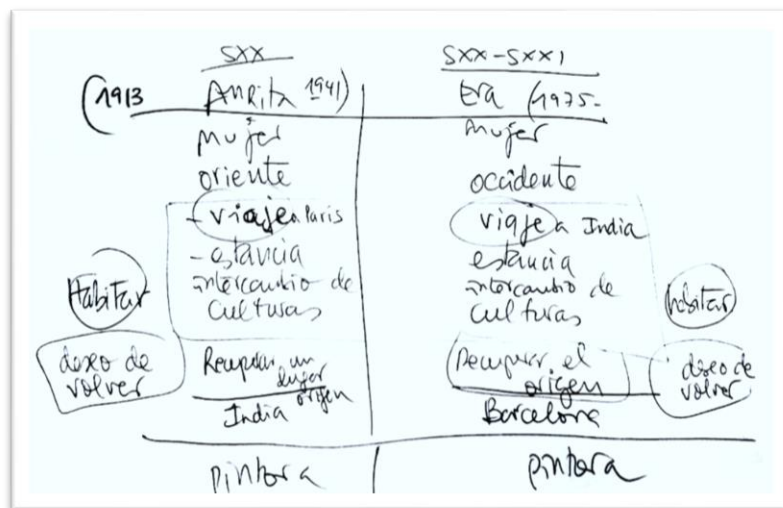 SXX
(1913 Amrita 1941)
mujer
oriente
- viaje a Paris
- estancia
intercambio de
culturas
Habitar
deseo de
volver
Recuperar un
lugar
origen
India
pintora
SXX-SXXI
Eva (1975-
mujer
occidente
viaje a India
estancia
intercambio de
culturas
habitar
Recuperar el
origen
deseo de
volver
Barcelona
pintora